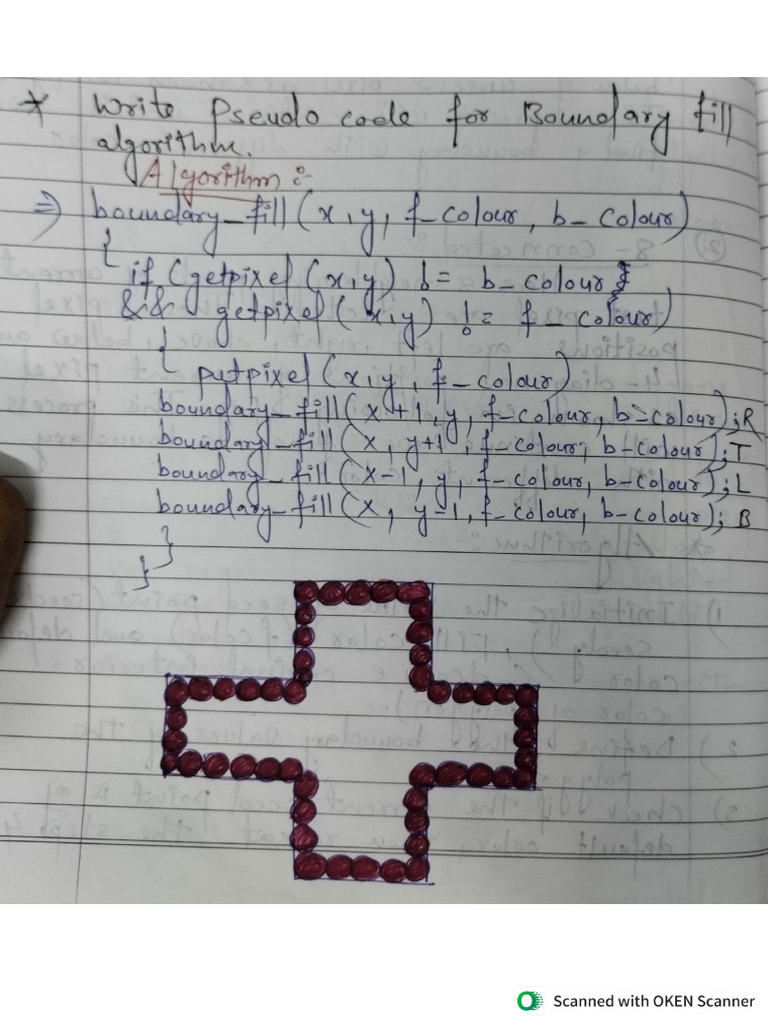 * Write Pseudo code for Boundary fill
algorithm.
Algorithm :-
⇒ boundary_fill (x, y, f_colour, b_colour)
{
if (getpixel (x, y) != b_colour
&& getpixel (x, y) != f_colour)
{ putpixel (x, y, f_colour)
boundary_fill (x+1, y, f_colour, b=colour); R
boundary_fill (x, y+1, f_colour, b_colour); T
boundary_fill (x-1, y, f_colour, b_colour); L
boundary_fill (x, y-1, f_colour, b_colour); B
}
}
Scanned with OKEN Scanner